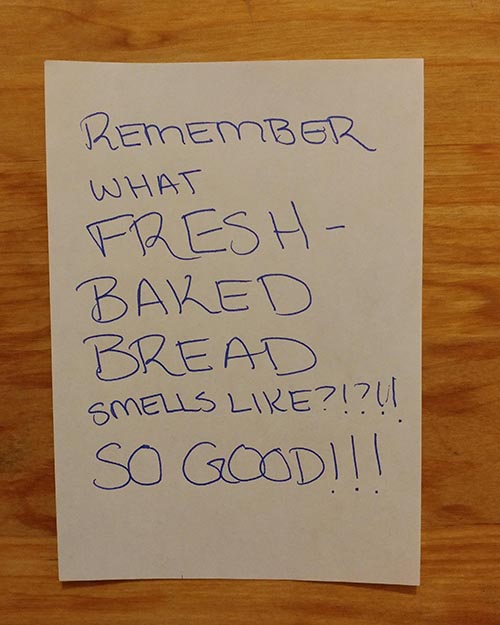 REMEMBER
WHAT
FRESH-
BAKED
BREAD
SMELLS LIKE?!?!!
SO GOOD!!!